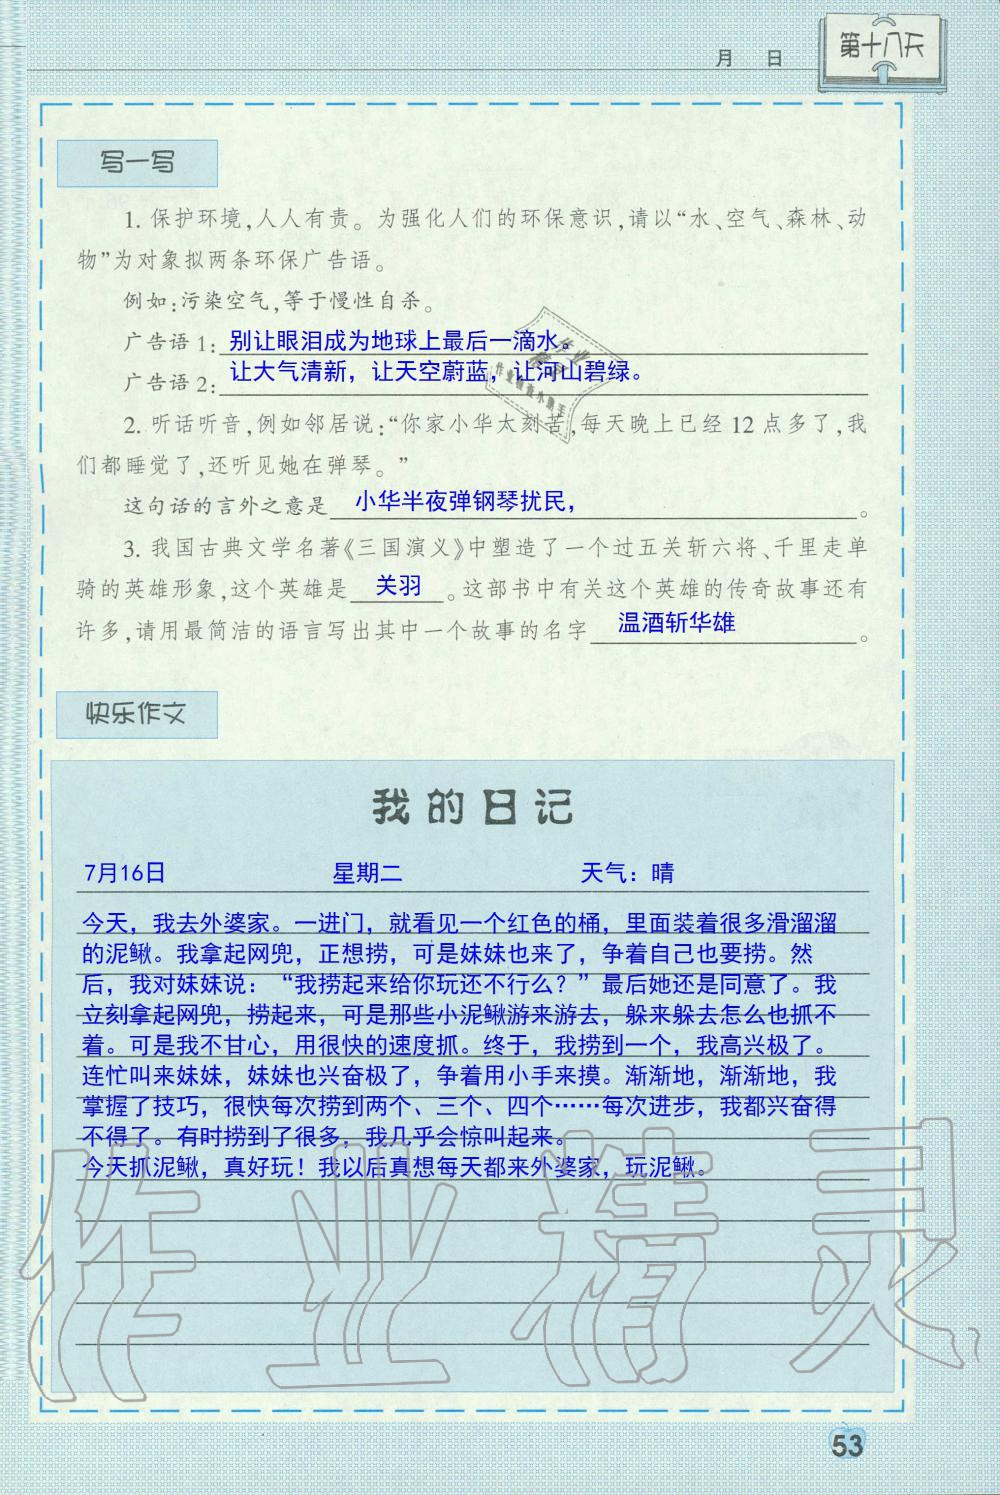 月 日
第十八天
写一写
1. 保护环境,人人有责。为强化人们的环保意识,请以“水、空气、森林、动
物”为对象拟两条环保广告语。
例如:污染空气,等于慢性自杀。
广告语1: 别让眼泪成为地球上最后一滴水。
广告语2: 让大气清新，让天空蔚蓝，让河山碧绿。
2. 听话听音,例如邻居说:“你家小华太刻苦,每天晚上已经12点多了,我
们都睡觉了,还听见她在弹琴。”
这句话的言外之意是 小华半夜弹钢琴扰民， 。
3. 我国古典文学名著《三国演义》中塑造了一个过五关斩六将、千里走单
骑的英雄形象,这个英雄是 关羽 。这部书中有关这个英雄的传奇故事还有
许多,请用最简洁的语言写出其中一个故事的名字 温酒斩华雄 。
快乐作文
我的日记
7月16日 星期二 天气：晴
今天，我去外婆家。一进门，就看见一个红色的桶，里面装着很多滑溜溜
的泥鳅。我拿起网兜，正想捞，可是妹妹也来了，争着自己也要捞。然
后，我对妹妹说：“我捞起来给你玩还不行么？”最后她还是同意了。我
立刻拿起网兜，捞起来，可是那些小泥鳅游来游去，躲来躲去怎么也抓不
着。可是我不甘心，用很快的速度抓。终于，我捞到一个，我高兴极了。
连忙叫来妹妹，妹妹也兴奋极了，争着用小手来摸。渐渐地，渐渐地，我
掌握了技巧，很快每次捞到两个、三个、四个……每次进步，我都兴奋得
不得了。有时捞到了很多，我几乎会惊叫起来。
今天抓泥鳅，真好玩！我以后真想每天都来外婆家，玩泥鳅。
作业精灵
53